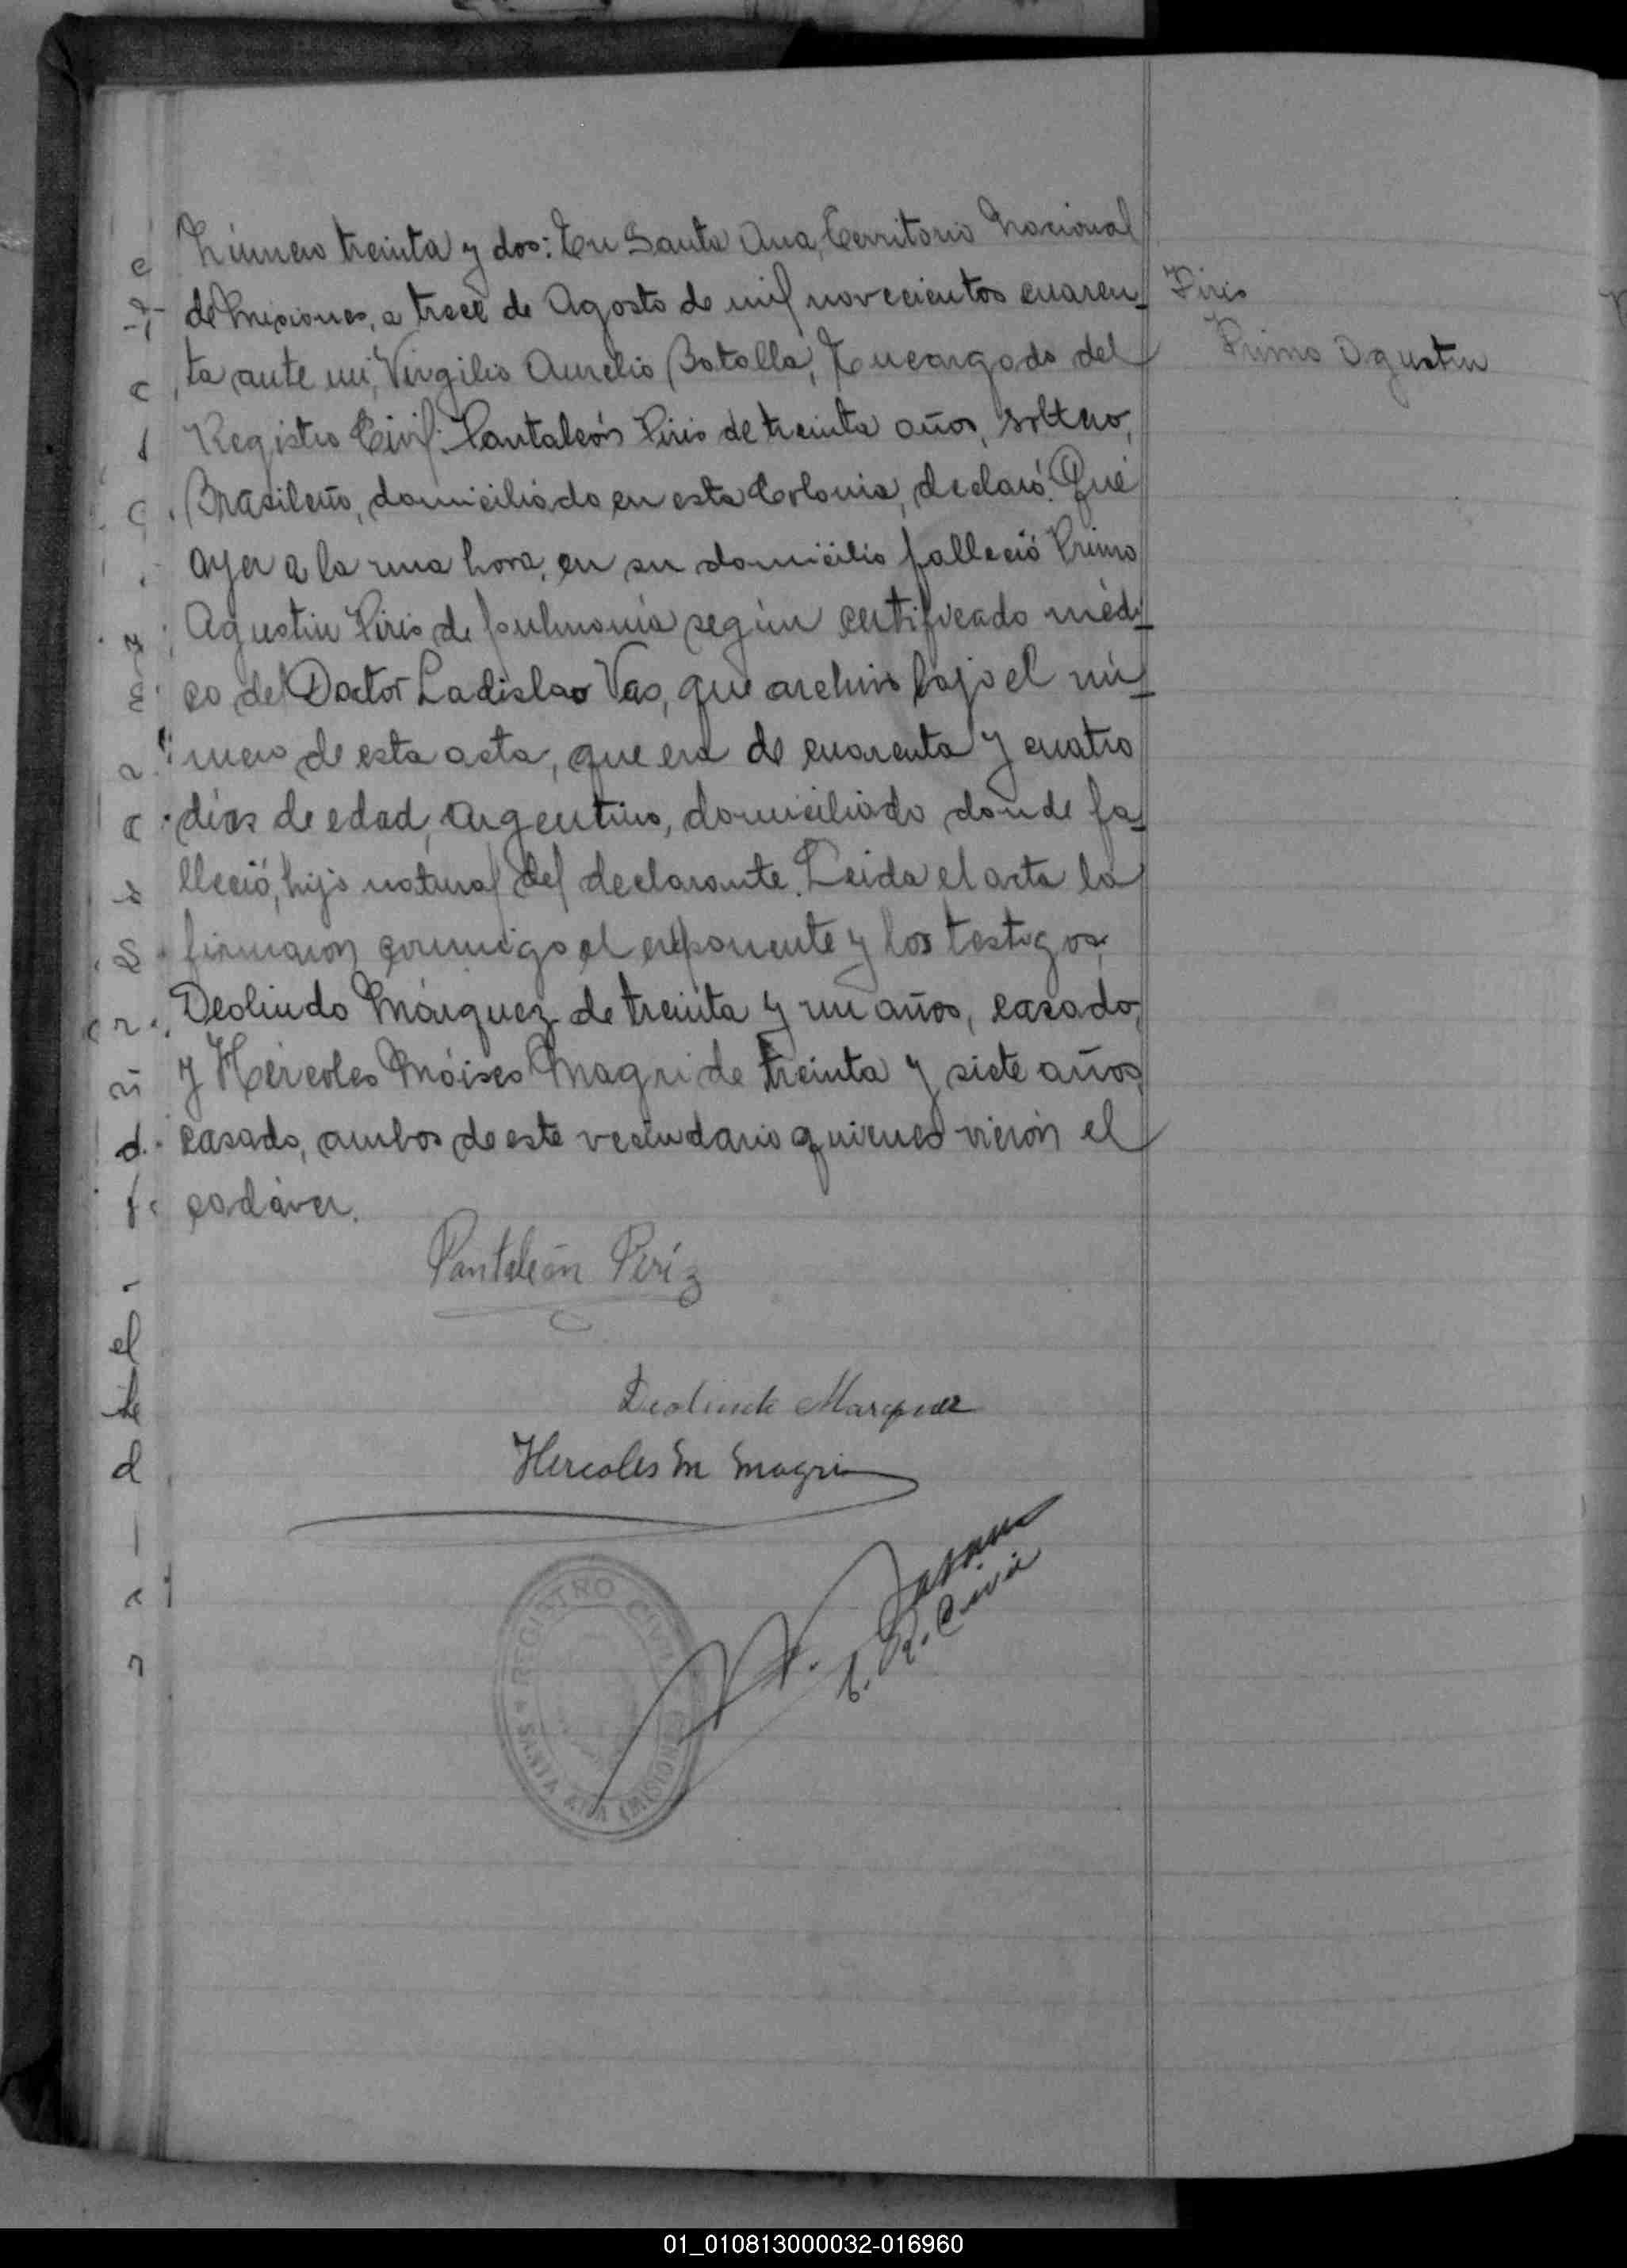 Número treinta y dos: En Santa Ana, Territorio Nacional
de Misiones, a trece de Agosto de mil novecientos cuaren_
ta ante mi, Virgilio Aurelio Batalla, Encargado del
Registro Civil: Pantaleón Piris de treinta años, soltero,
Brasileño, domiciliado en esta Colonia, declaró: Que
ayer a la una hora, en su domicilio falleció Primo
Agustin Piris de pulmonía según certificado médi_
co del Doctor Ladislao Vas, que archivo bajo el nú_
mero de esta acta, que era de cuarenta y cuatro
días de edad, Argentino, domiciliado donde fa_
lleció, hijo natural del declarante. Leida el acta la
firmaron conmigo el exponente y los testigos,
Deolindo Márquez de treinta y un años, casado,
y Hércoles Móises Magri de treinta y siete años,
casado, ambos de este vecindario quienes vierón el
cadáver.
Piris
Primo Agustin
Pantaleón Periz
Deolindo Marquez
Hercoles M Magri
E. R. Civil
REGISTRO CIVIL
SANTA ANA (MISIONES)
el
de
d
01_010813000032-016960